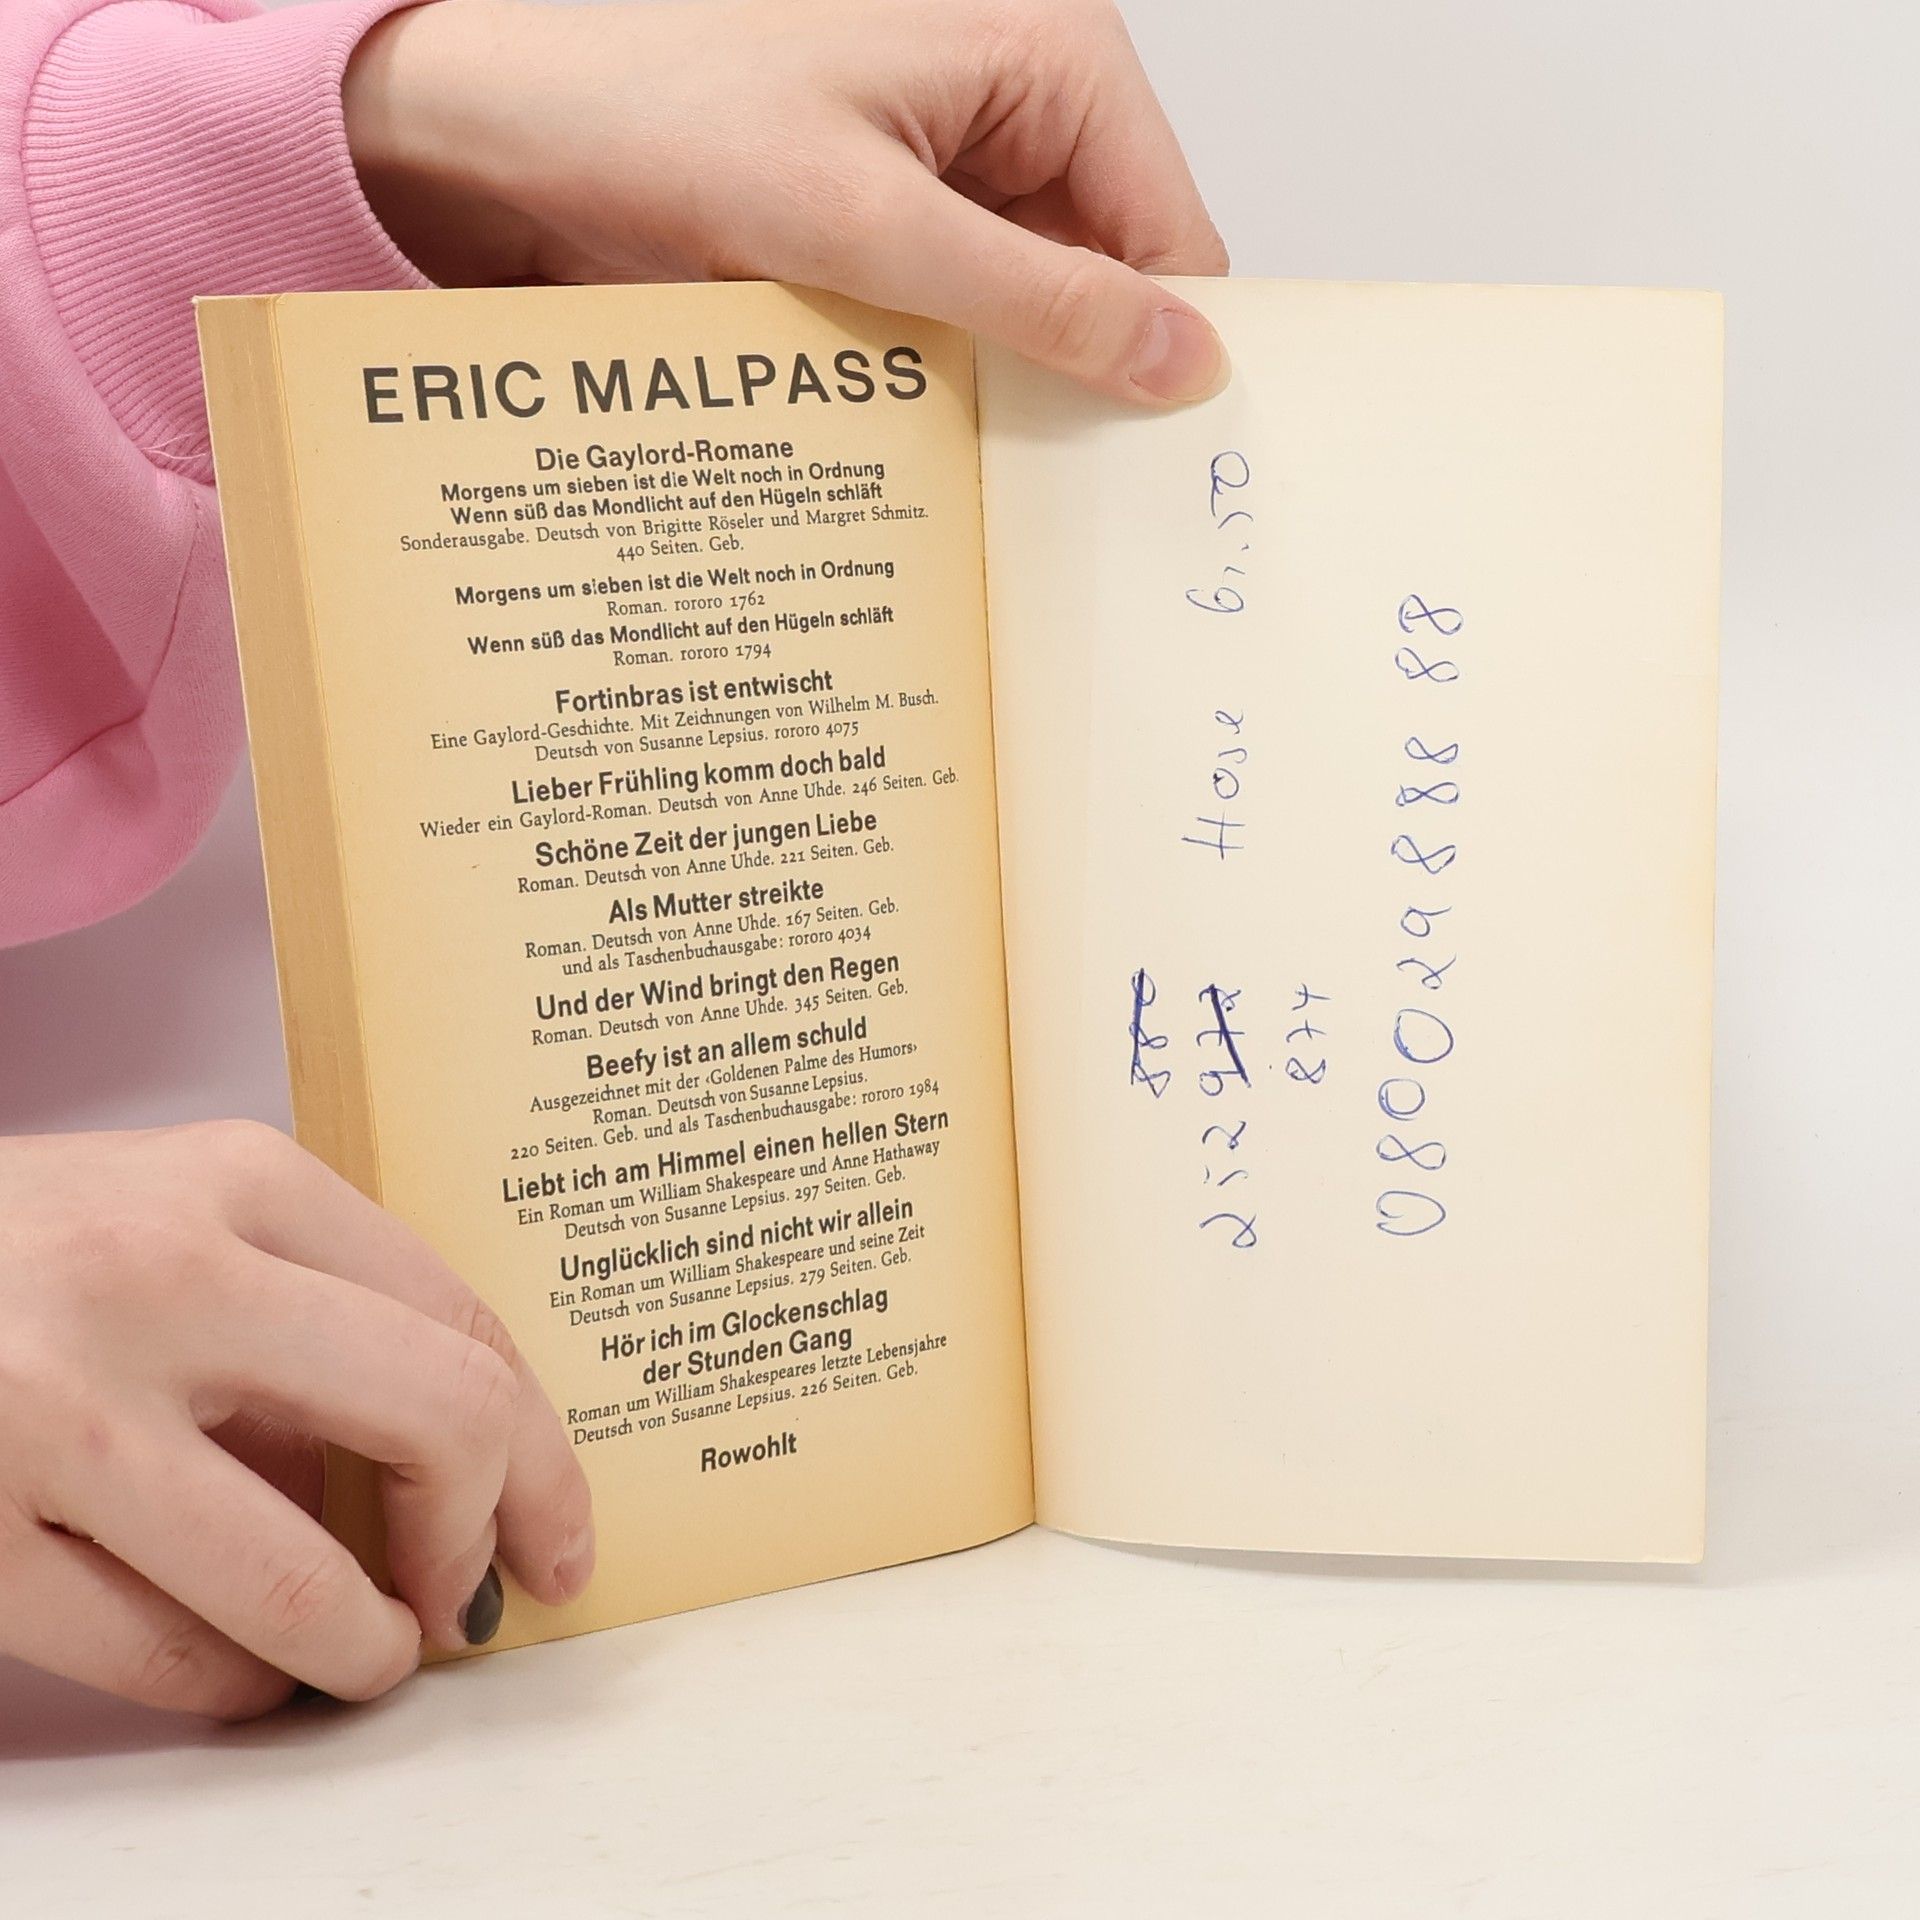 ERIC MALPASS
Die Gaylord-Romane
Morgens um sieben ist die Welt noch in Ordnung
Wenn süß das Mondlicht auf den Hügeln schläft
Sonderausgabe. Deutsch von Brigitte Röseler und Margret Schmitz.
440 Seiten. Geb.
Morgens um sieben ist die Welt noch in Ordnung
Roman. rororo 1762
Wenn süß das Mondlicht auf den Hügeln schläft
Roman. rororo 1794
Fortinbras ist entwischt
Eine Gaylord-Geschichte. Mit Zeichnungen von Wilhelm M. Busch.
Deutsch von Susanne Lepsius. rororo 4075
Lieber Frühling komm doch bald
Wieder ein Gaylord-Roman. Deutsch von Anne Uhde. 246 Seiten. Geb.
Schöne Zeit der jungen Liebe
Roman. Deutsch von Anne Uhde. 221 Seiten. Geb.
Als Mutter streikte
Roman. Deutsch von Anne Uhde. 167 Seiten. Geb.
und als Taschenbuchausgabe: rororo 4034
Und der Wind bringt den Regen
Roman. Deutsch von Anne Uhde. 345 Seiten. Geb.
Beefy ist an allem schuld
Ausgezeichnet mit der ‹Goldenen Palme des Humors›
Roman. Deutsch von Susanne Lepsius.
220 Seiten. Geb. und als Taschenbuchausgabe: rororo 1984
Liebt ich am Himmel einen hellen Stern
Ein Roman um William Shakespeare und Anne Hathaway
Deutsch von Susanne Lepsius. 297 Seiten. Geb.
Unglücklich sind nicht wir allein
Ein Roman um William Shakespeare und seine Zeit
Deutsch von Susanne Lepsius. 279 Seiten. Geb.
Hör ich im Glockenschlag
der Stunden Gang
Roman um William Shakespeares letzte Lebensjahre
Deutsch von Susanne Lepsius. 226 Seiten. Geb.
Rowohlt
Hose
874
0800 29 888 88